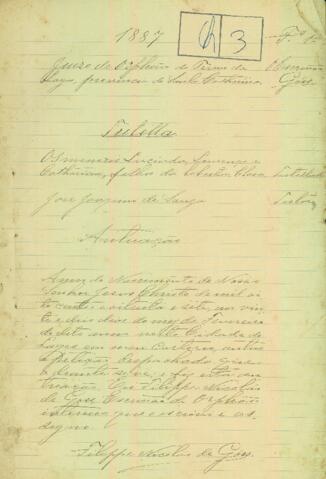 1887
Juizo de Orphãos do Termo da
Lages, provincia de Santa Catharina
Escrivão
Góss
Tutella
Os menores Lucinda, Lourenço e
Catharina, filhos da Tutellados
José Joaquim de Tutor
Autuação
Anno do Nascimento de Nosso
Senhor Jesus Christo de mil oi
to centos e oitenta e sete, aos vin
te e dous dias do mez de Fevereiro
do dito anno nesta Cidade de
Lages em meu Cartorio, autuo
a Petição despachada que
e faz esta au
tuação. Eu Filippe Nicolau
de Góss Escrivão de Orphãos
interino que o escrevi e as
signo.
Filippe Nicolau de Góss